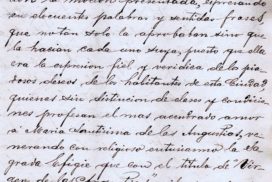 con la moción presentada, expresando
en elocuente palabras y sentidas frases,
que no tan solo la aprobaban sino que
la hacian cada uno suya, puesto que ella
era la espresion fiel y veridica de los pia
dosos deseos de los habitantes de esta Ciudad
quienes sin distincion de clases y condicio
nes profesan el mas acendrado amor
a Maria Santisima de las Angustias, ve
nerando con religioso entusiasmo la Sa
grada Efigie que con el titulo de Vir
gen de las